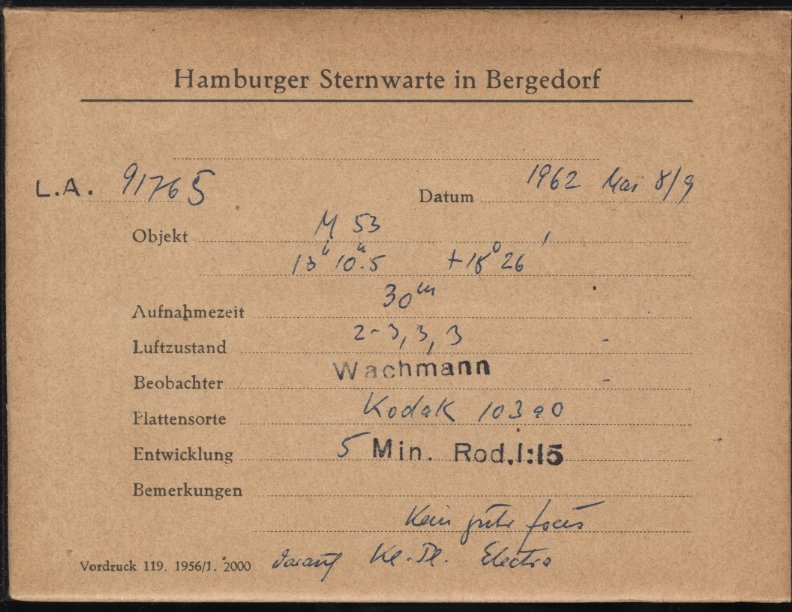 Hamburger Sternwarte in Bergedorf
L.A. 91765 Datum 1962 Mai 8/9
Objekt M 53
13ʰ 10ᵐ.5 +18° 26'
Aufnahmezeit 30ᵐ
Luftzustand 2-3, 3, 3
Beobachter Wachmann
Plattensorte Kodak 103aO
Entwicklung 5 Min. Rod. 1:15
Bemerkungen
Kein guter focus
Vordruck 119. 1956/1. 2000 darauf Kl. Pl. Electra